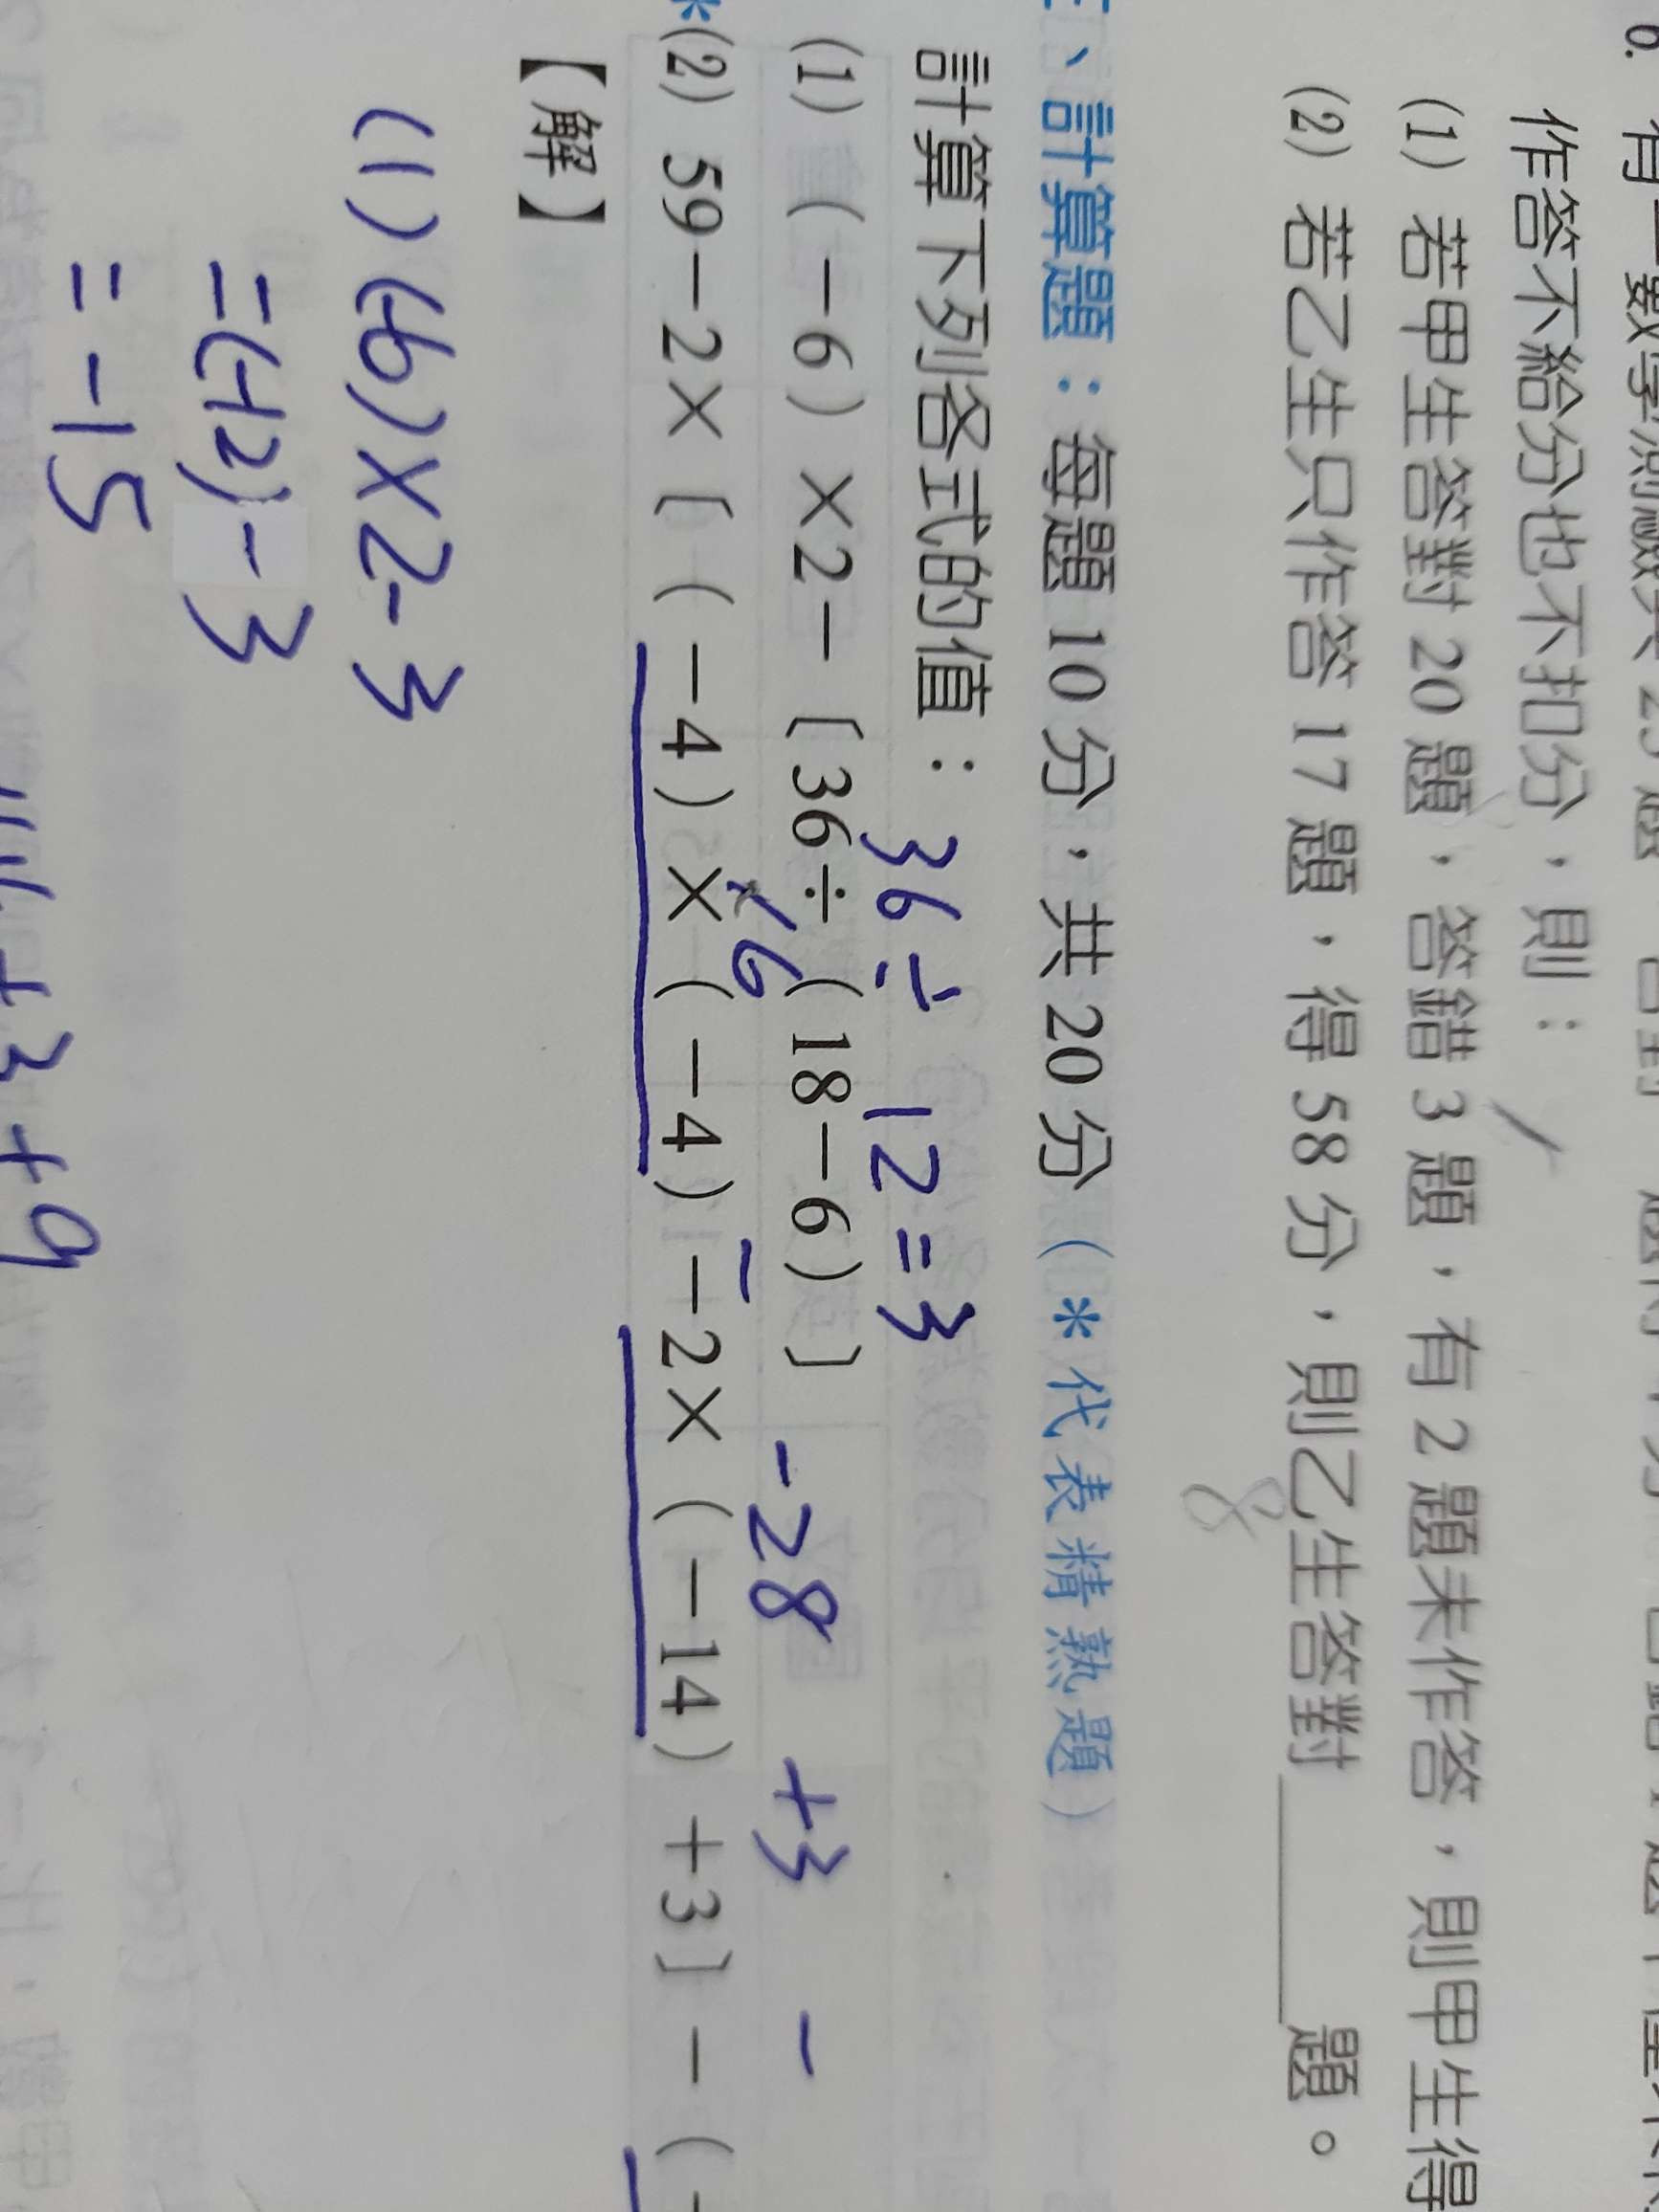 6. 有一數學測驗共25題
作答不給分也不扣分，則：
(1) 若甲生答對 20 題，答錯 3 題，有 2 題未作答，則甲生得
(2) 若乙生只作答 17 題，得 58 分，則乙生答對______題。
8
、計算題：每題 10 分，共 20 分（* 代表精熟題）
計算下列各式的值：
36÷12=3
(1) (－6) ×2－〔36÷(18－6)〕
16 － -28 +3 －
*(2) 59－2×〔(－4) × (－4) －2× (－14) +3〕－(－
【解】
(1) (-6)×2-3
=(-12)-3
= -15
+3+9